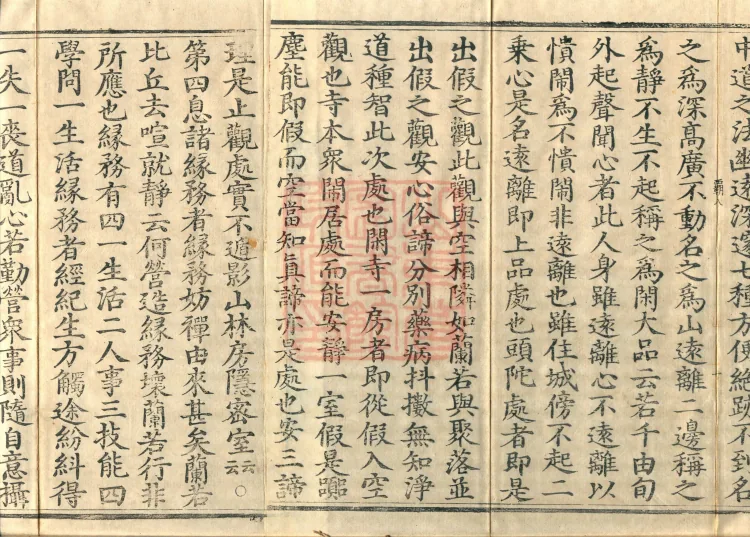 中道之法幽遠深邃七種方便絶跡不到名
之爲深高廣不動名之爲山遠離二邊稱之
爲靜不生不起稱之爲閑大品云若千由旬
外起聲聞心者此人身雖遠離心不遠離以
憒閙爲不憒閙非遠離也雖住城傍不起二
乗心是名遠離即上品處也頭陀處者即是
出假之觀此觀與空相隣如蘭若與聚落並
出假之觀安心俗諦分別藥病抖擻無知淨
道種智此次處也閑寺一房者即從假入空
觀也寺本衆閙居處而能安靜一室假是囂
塵能即假而空當知眞諦亦是處也安三諦
理是止觀處實不遁影山林房隱密室云云○
第四息諸縁務者縁務妨禪由來甚矣蘭若
比丘去喧就靜云何營造縁務壞蘭若行非
所應也縁務有四一生活二人事三技能四
學問一生活縁務者經紀生方觸途紛糾得
一失一喪道亂心若勤營衆事則隨自意攝